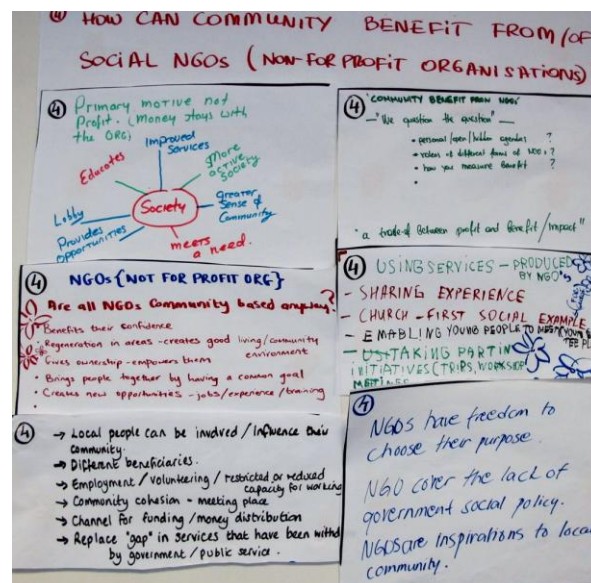 ④ HOW CAN COMMUNITY BENEFIT FROM/OF
SOCIAL NGOs (NON-FOR PROFIT ORGANISATIONS)
④ Primary motive not
Profit. (Money stays with
the ORG)
Improved
Services
Educates
More
active
Society
Society
Greater
Sense of
Community
Lobby
Provides
opportunities
meets
a need.
④ "COMMUNITY BENEFIT FROM NGOs"
— "We question the question" —
• personal/open/hidden agendas ?
• values of different forms of NGOs ?
• how you measure benefit ?
•
"a trade-of between profit and benefit/impact"
④ NGOs {NOT FOR PROFIT ORG}
Are all NGOs Community based anyway?
• Benefits their confidence
• Regeneration in areas - creates good living/community
environment
• Gives ownership - empowers them
• Brings people together by having a common goal
• Creates new opportunities - jobs/experience/training
•
④ USING SERVICES - PRODUCED
BY NGO's
- SHARING EXPERIENCE
- CHURCH - FIRST SOCIAL EXAMPLE
- EMABLING YOUNG PEOPLE TO
- TAKING PART IN
INITIATIVES (TRIPS, WORKSHOP
④ → Local people can be involved / Influence their
community.
→ Different beneficiaries.
→ Employment / volunteering / restricted or reduced
capacity for working
→ Community cohesion - meeting place
→ Channel for funding / money distribution
→ Replace "gap" in services that have been withd
by government / public service.
④
NGOs have freedom to
choose their purpose.
NGO cover the lack of
government social policy.
NGOs are inspirations to local
community.